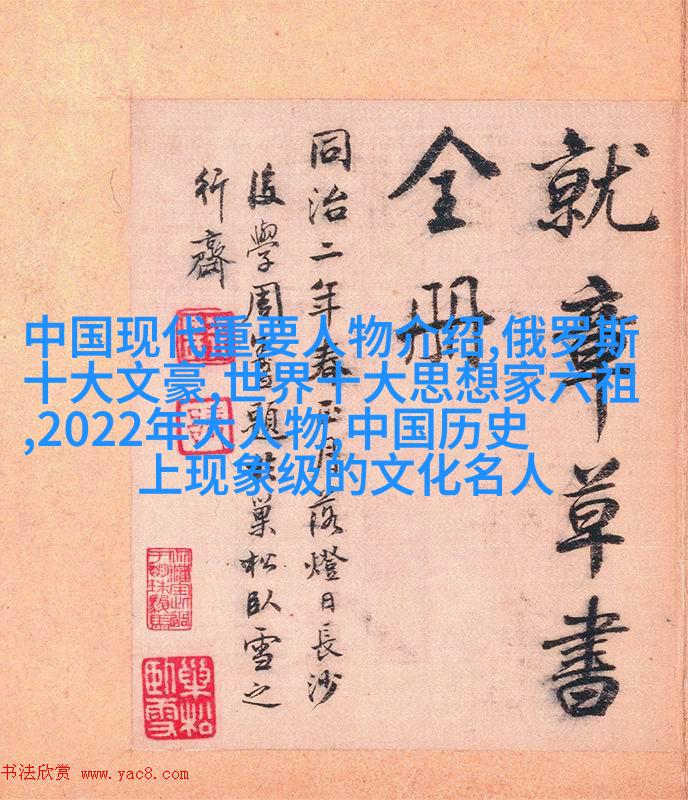 就章草書
全册
同治二年春正月落燈日長沙
後學周
題
巢松臥雪之
行齋
巢松
臥雪
中国现代重要人物介绍,俄罗斯
十大文豪,世界十大思想家六祖
,2022年大人物,中国历史
上现象级的文化名人
书法欣赏 www.yac8.com